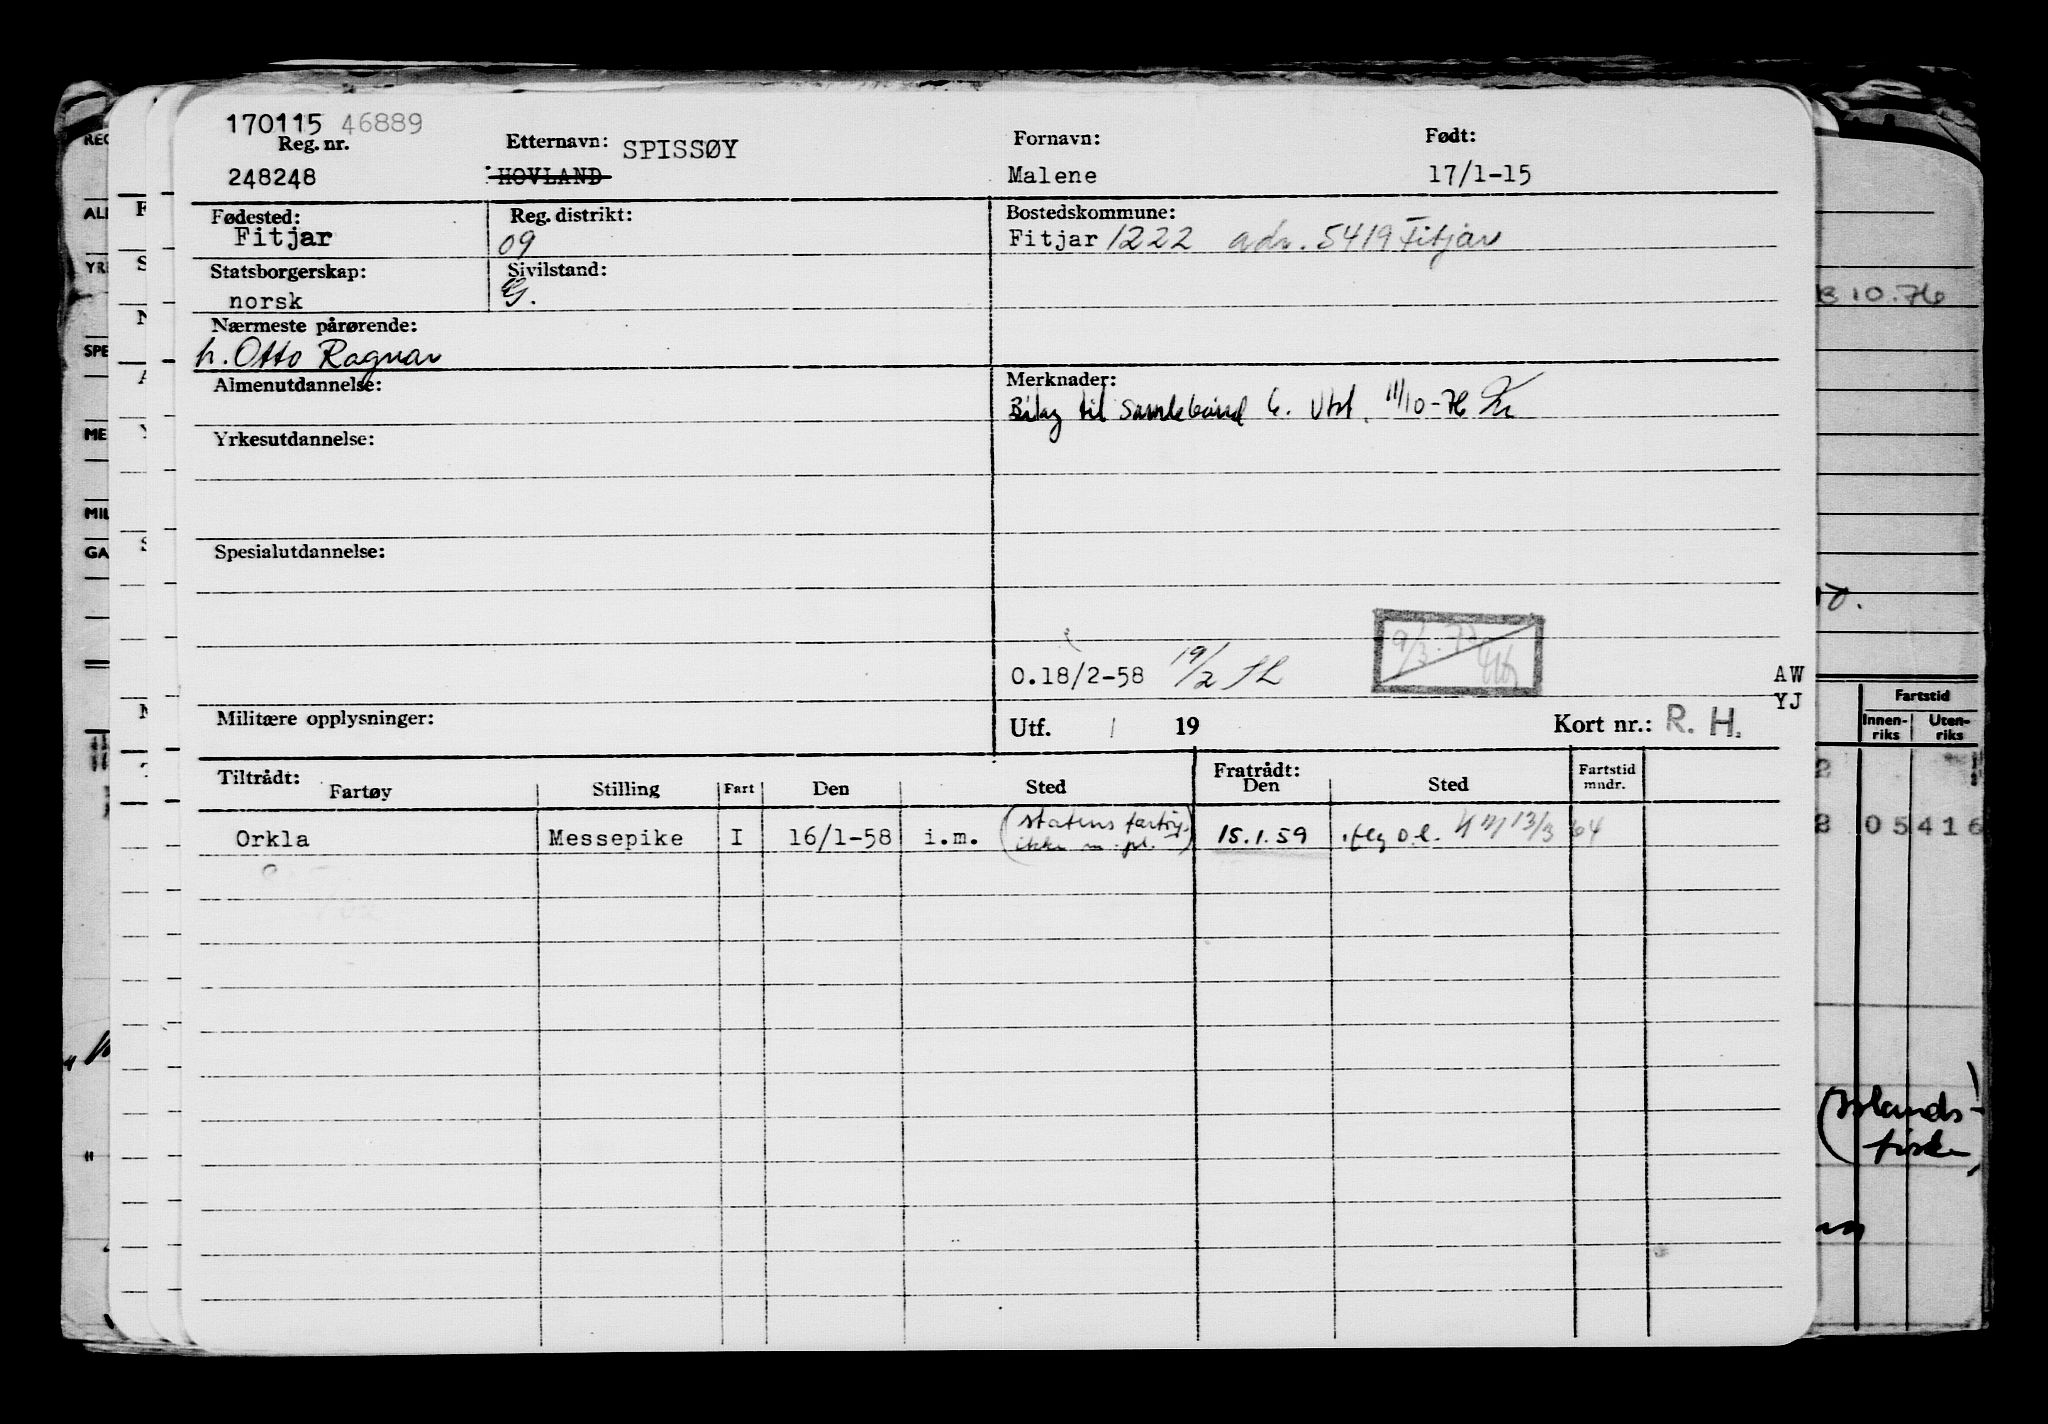 170115 46889
Reg. nr.
248248
Etternavn: SPISSØY
HOVLAND
Fornavn:
Malene
Født:
17/1-15
Fødested:
Fitjar
Reg. distrikt:
09
Bostedskommune:
Fitjar 1222 adr. 5419 Fitjar
Statsborgerskap:
norsk
Sivilstand:
G.
Nærmeste pårørende:
h. Otto Ragnar
Almenutdannelse:
Merknader:
Bilag til samlebånd 6. Utst. 11/10-76
Yrkesutdannelse:
Spesialutdannelse:
O.18/2-58 19/2
AW
YJ
Militære opplysninger:
Utf. / 19
Kort nr.: R. H.
Tiltrådt:
Fartøy Stilling Fart Den Sted
Fratrådt:
Den Sted
Fartstid
mndr.
Orkla Messepike I 16/1-58 i.m. (statens fartøy
ikke m. pl.) 15.1.59 13/3 64
B 10.76
Fartstid
Innen-
riks
Uten-
riks
05416
(Islands-
fiske)